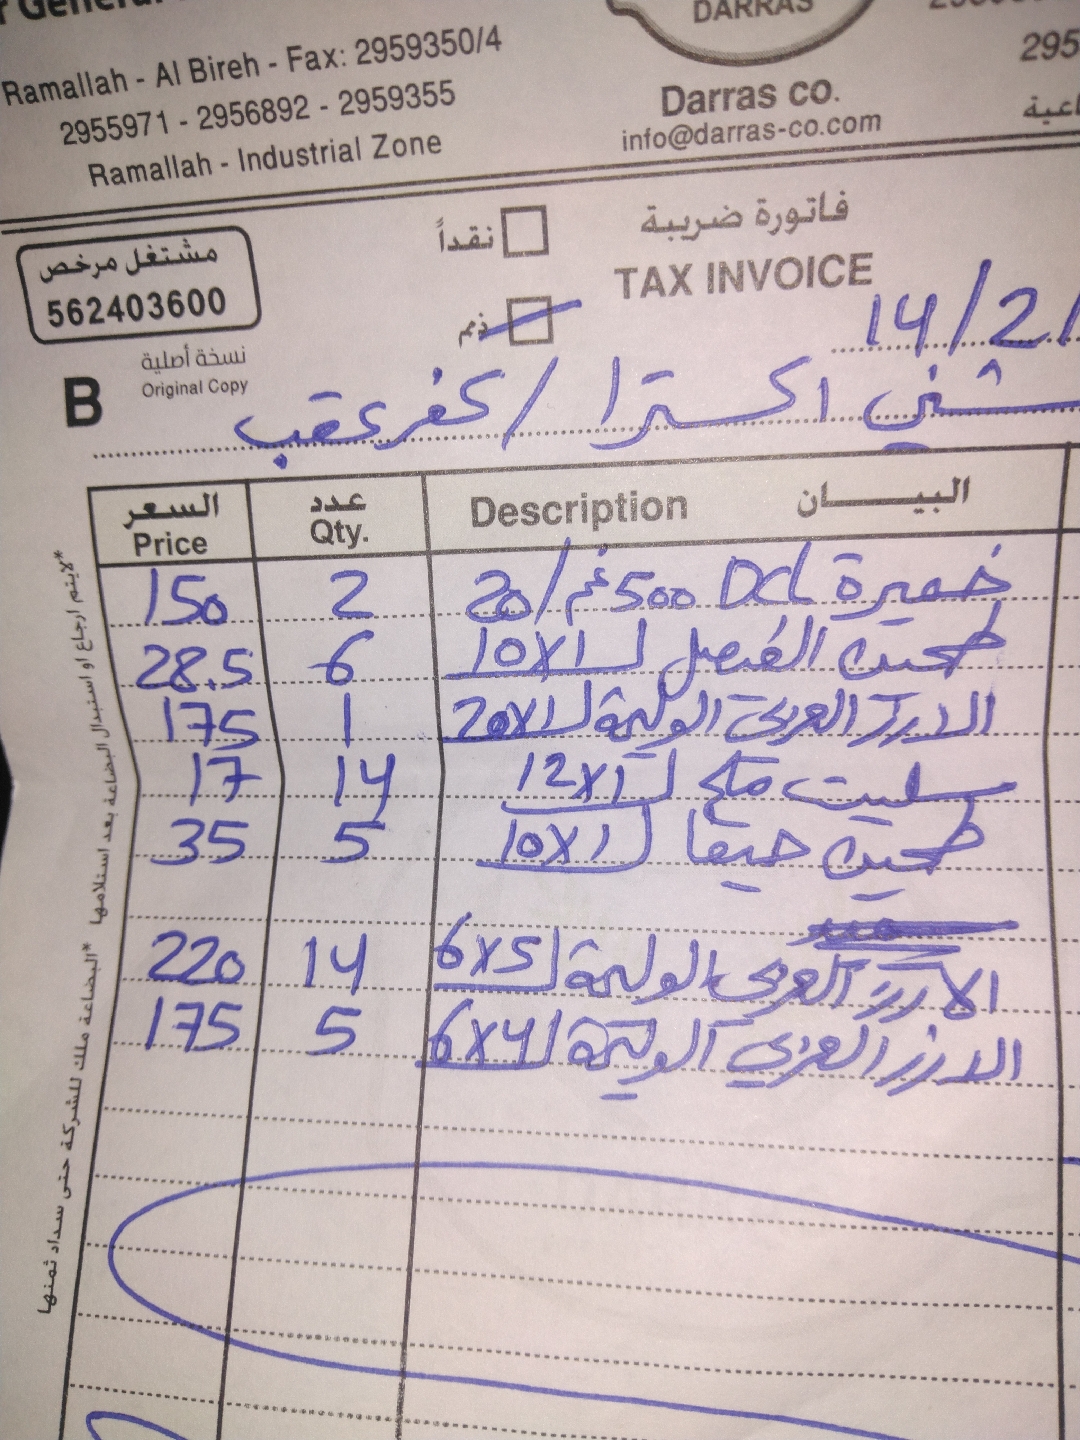 Ramallah - Al Bireh - Fax: 2959350/4
2955971 - 2956892 - 2959355
Ramallah - Industrial Zone
DARRAS
Darras co.
info@darras-co.com
295
مشتغل مرخص
562403600
نقداً
ذمم
فاتورة ضريبة
TAX INVOICE
14/2/
نسخة أصلية
Original Copy
B
اكسترا / كفر عقب
السعر عدد البيــــــان
Price Qty. Description
خميرة DCL 500غم/20 2 150
طحين الفيصل 10X1 6 28.5
الارز العربي الوليمة 20X1 1 175
سليت ملح 12X1 14 17
طحين حيفا 10X1 5 35
الارز العربي الوليمة 6X5 14 220
الارز العربي الوليمة 6X4 5 175
*لايتم ارجاع او استبدال البضاعة بعد استلامها *البضاعة ملك للشركة حتى سداد ثمنها